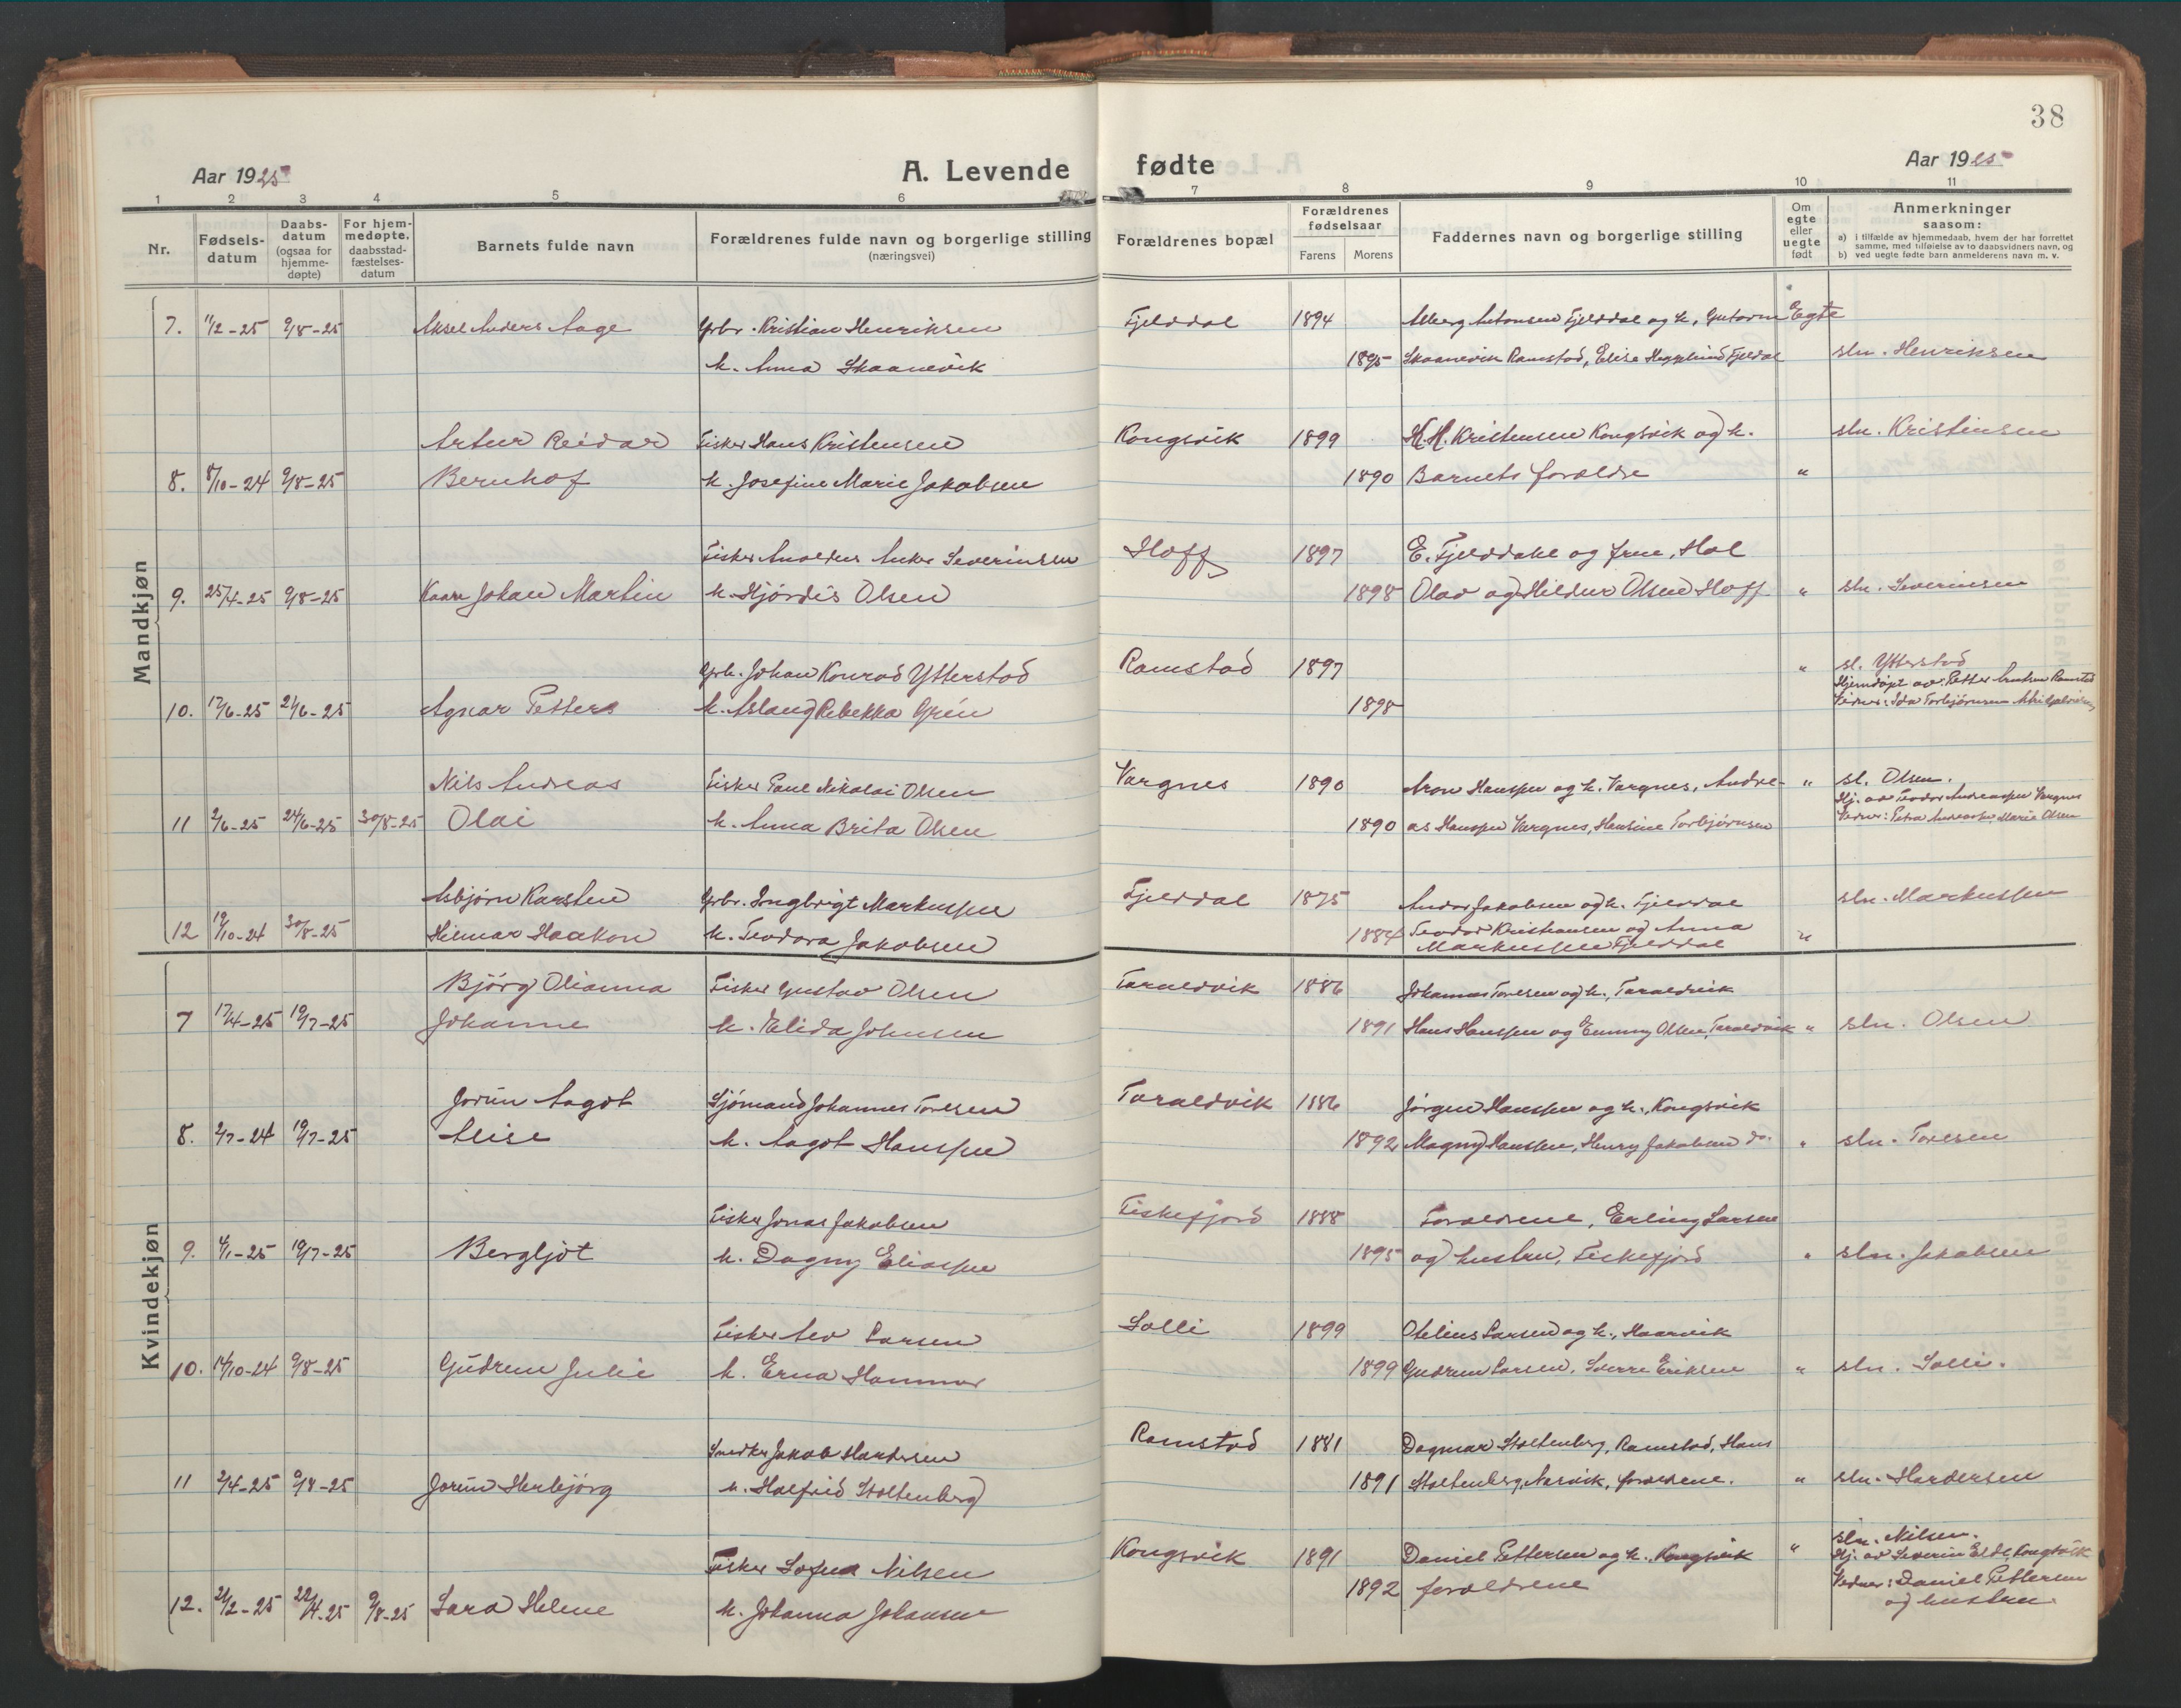 38
Aar 1925
A. Levende fødte
Aar 1925
1 2 3 4 5 6 7 8 9 10 11
Nr.
Fødselsdatum
Daabsdatum (ogsaa for hjemmedøpte)
For hjemmedøpte, daabsstadfæstelsesdatum
Barnets fulde navn
Forældrenes fulde navn og borgerlige stilling (næringsvei)
Forældrenes bopæl
Forældrenes fødselsaar
Farens Morens
Faddernes navn og borgerlige stilling
Om egte eller uegte født
Anmerkninger saasom:
a) i tilfælde av hjemmedaab, hvem der har forrettet samme, med tilføielse av to daabsvidners navn, og
b) ved uegte fødte barn anmelderens navn m. v.
Mandkjøn
7. 11/2-25 9/8-25 Aksel Anders Aage Grbr. Kristian Henriksen Fjelddal 1894 Antonsen Fjelddal og h. Egte
h. Anna Skaanevik 1895 Skaanevik Ramstad, Elise Fjeldal sln. Henriksen
Artur Reidar Fisker Hans Kristensen Kongsvik 1899 H. H. Kristensen Kongsvik og h. sln. Kristensen
8. 8/10-24 9/8-25 Bernhof h. Josefine Marie Jakobsen 1890 Barnets foreldre "
Fisker Anker Severinsen Hoff 1897 E. Fjelddahl og frue, Hol
9. 25/4-25 9/8-25 Kaare Johan Martin h. Hjördis Olsen 1898 Olav og Hildur Olsen Hoff " sln. Severinsen
Grb. Johan Konrad Ytterstad Ramstad 1897 " sl. Ytterstad
Hjemdöpt av: Petter Ramstad
10. 17/6-25 21/6-25 Agnar Petter h. Aslaug Rebekka Grén 1898 Vidner: Ida Torbjörnsen
Nils Andreas Fisker Paul Nikolai Olsen Vargnes 1890 Aron Hanssen og h. Vargnes, Andre- " sl. Olsen.
Hj. av Teodor Andreassen Vargnes
11 2/6-25 24/6-25 30/8-25 Olai h. Anna Brita Olsen 1890 as Hanssen Vargnes, Hansine Torbjörnsen Vidner: Petra Andreassen, Marie Olsen
Asbjörn Karsten Grbr. Ingbrigt Markussen Fjelddal 1875 Jakobsen og h. Fjelddal sln. Markussen
12 19/10-24 30/8-25 Hilmar Haakon h. Teodora Jakobsen 1884 Teodor Kristiansen og Anna "
Markussen Fjelddal
Kvindekjøn
Björg Olianna Fisker Gustav Olsen Taraldvik 1886 Johannes Toresen og h., Taraldvik
7 17/4-25 19/7-25 Johanne h. Elida Johnsen 1891 Hans Hanssen og Emmy Olsen, Taraldvik " sln. Olsen
Jorun Aagot Sjömand Johannes Toresen Taraldvik 1886 Jörgen Hanssen og h., Kongsvik
8. 2/7-24 19/7-25 Alise h. Aagot Hanssen 1892 Magny Hanssen, Henry Jakobsen do. " sln. Toresen
Fisker Jonas Jakobsen Fiskefjord 1888 Foreldrene, Erling Larsen
9. 4/1-25 19/7-25 Bergljot h. Dagny Eliassen 1895 og hustru, Fiskefjord " sln. Jakobsen
Fisker Larsen Solli 1899 Otelius Larsen og h., Haarvik
10. 14/10-24 9/8-25 Gudrun Julie h. Erna Hammer 1899 Gudrun Larsen, Sverre Eriksen " sln. Solli.
Snedker Jakob Hardersen Ramstad 1881 Dagmar Stoltenberg, Ramstad, Hans
11 2/4-25 9/8-25 Jorun Herbjörg h. Halfrid Stoltenberg 1891 Stoltenberg, Narvik, foreldrene. " sln. Hardersen
Fisker Nilsen Kongsvik 1891 Daniel Pettersen og h. Kongsvik " sln. Nilsen.
Hj. av Severin Kongsvik
12. 21/2-25 22/4-25 9/8-25 Sara Helene h. Johanna Johansen 1892 foreldrene Vidner: Daniel Pettersen
og hustru.